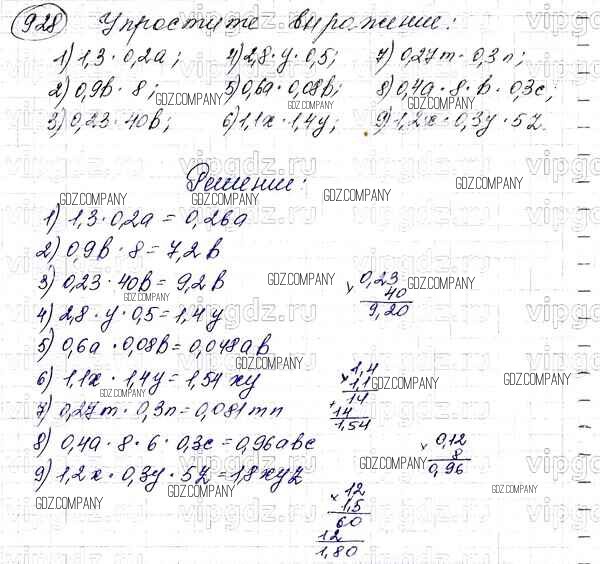 928 Упростите выражение:
1) 1,3 · 0,2a; 4) 2,8 · y · 0,5; 7) 0,27m · 0,3n;
2) 0,9b · 8; 5) 0,6a · 0,08b; 8) 0,4a · 8 · b · 0,3c;
3) 0,23 · 40b; 6) 1,1x · 1,4y; 9) 1,2x · 0,3y · 5z.
Решение:
1) 1,3 · 0,2a = 0,26a
2) 0,9b · 8 = 7,2b
3) 0,23 · 40b = 9,2b
4) 2,8 · y · 0,5 = 1,4y
5) 0,6a · 0,08b = 0,048ab
6) 1,1x · 1,4y = 1,54xy
7) 0,27m · 0,3n = 0,081mn
8) 0,4a · 8 · 6 · 0,3c = 0,96abc
9) 1,2x · 0,3y · 5z = 1,8xyz
× 0,23
40
9,20
× 1,4
1,1
14
+
14
1,54
× 0,12
8
0,96
× 12
1,5
60
12
1,80
GDZ.COMPANY
vipgdz.ru